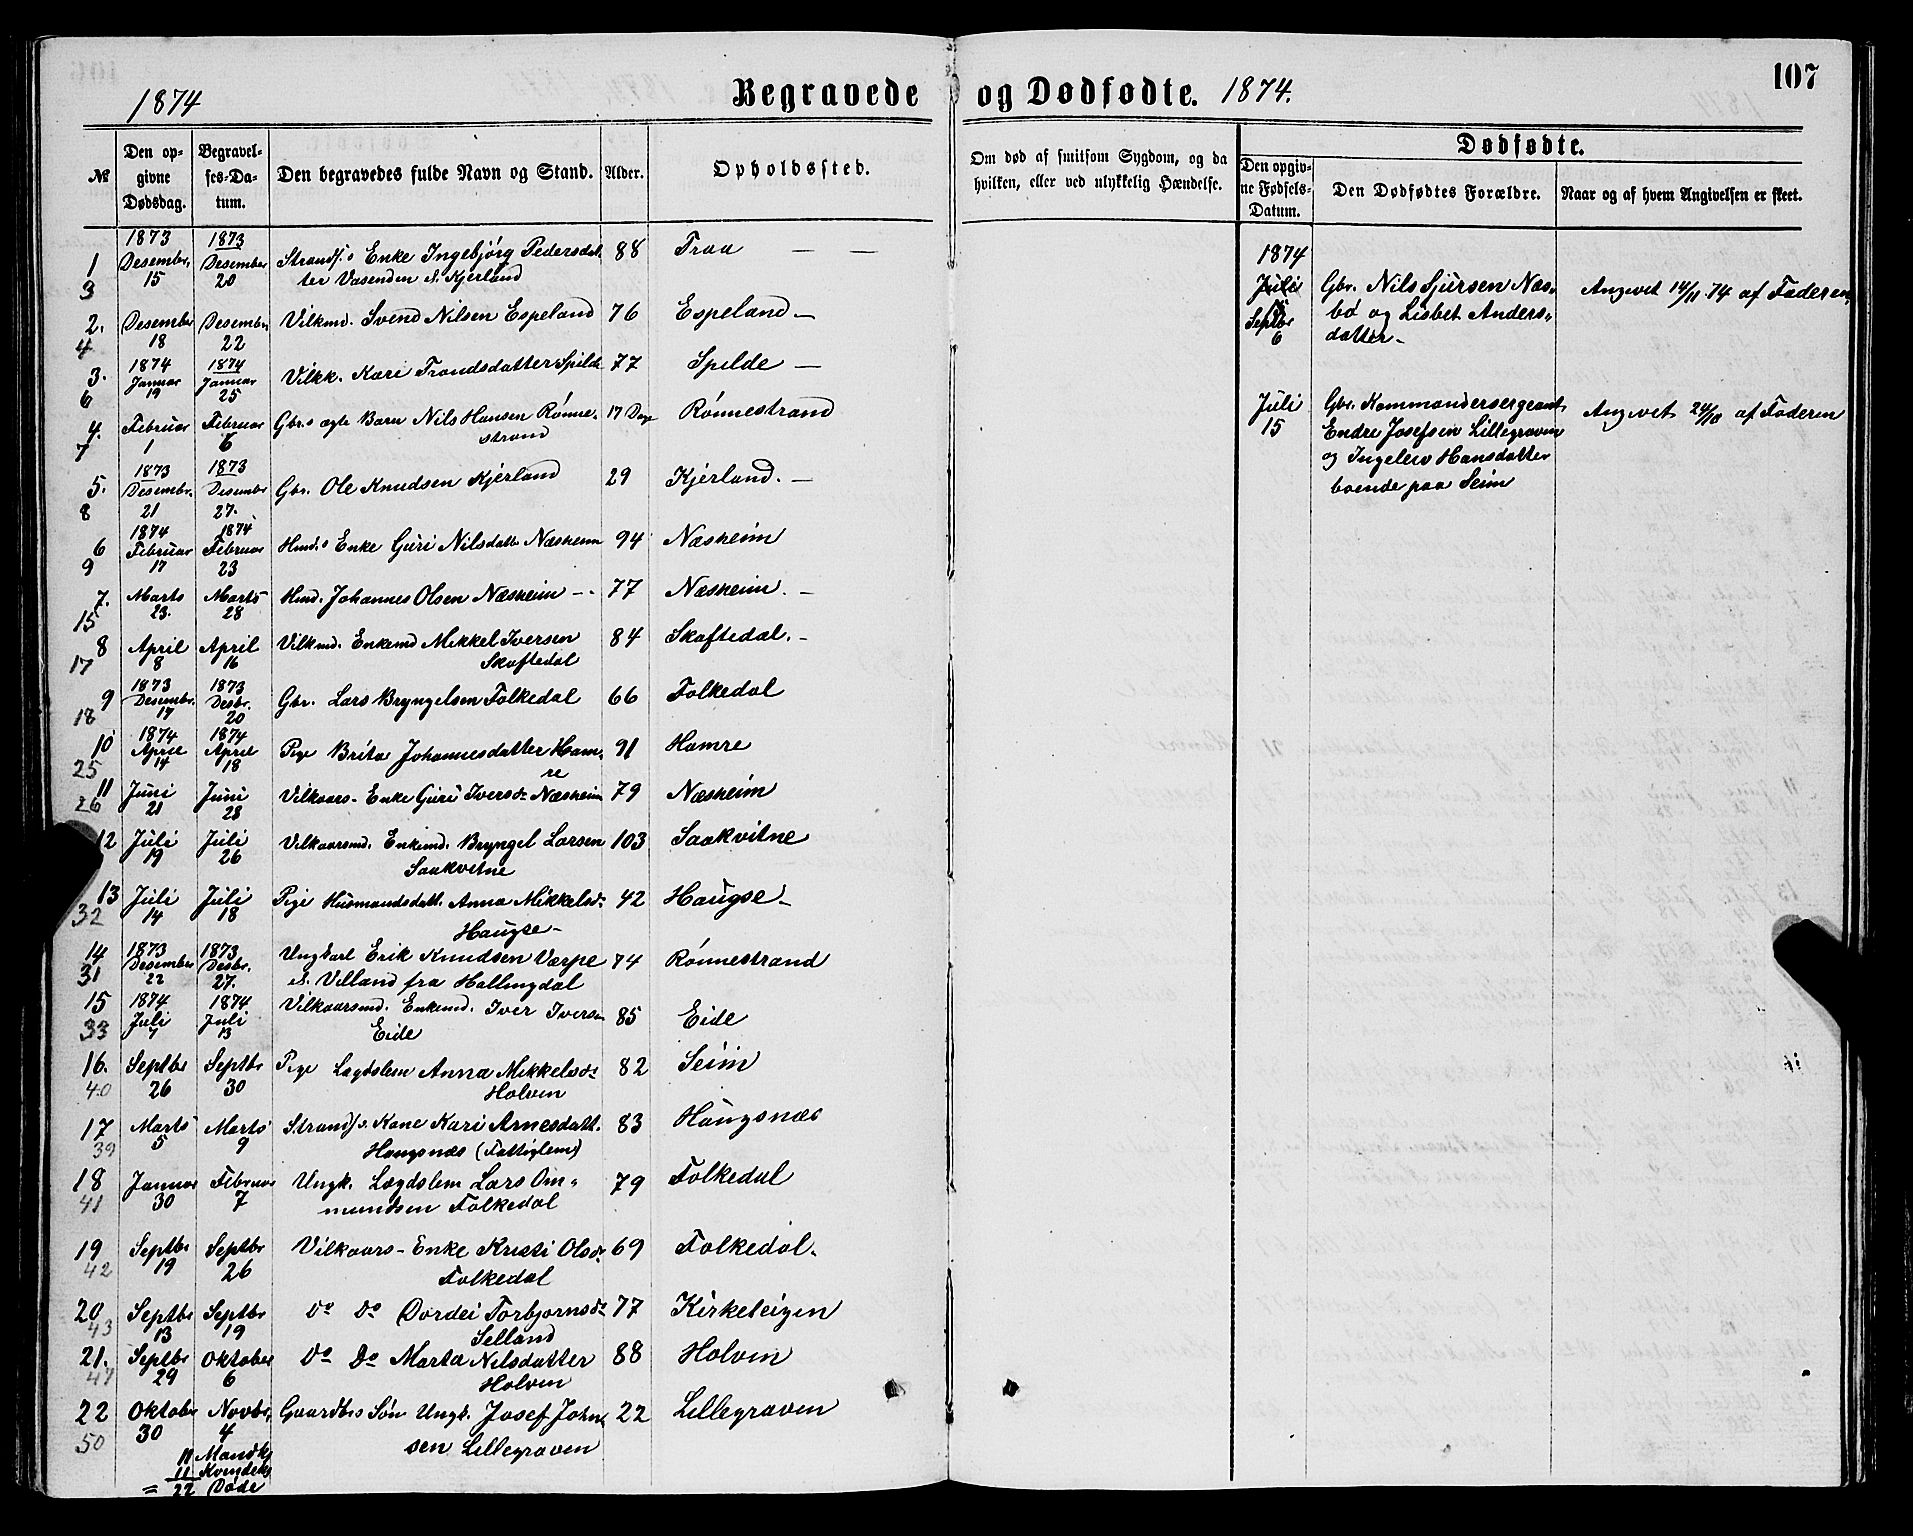 1874
Begravede og Dødfødte. 1874.
107
Dødfødte.
№
Den opgivne Dødsdag.
Begravelses-Datum.
Den begravedes fulde Navn og Stand.
Alder.
Opholdssted.
Om død af smitsom Sygdom, og da hvilken, eller ved ulykkelig Hændelse.
Den opgivne Fødsels-Datum.
Den Dødfødtes Forældre.
Naar og af hvem Angivelsen er skeet.
1 3 1873 Desembr. 15 1873 Desember 20 Strands. Enke Ingebjörg Pedersdat 88 Traa — —
ter Vasenden e. Kjerland
2. 4 Desember 18 Desembr. 22 Vilkmd. Svend Nilsen Espeland 76 Espeland —
3. 6 1874 Januar 19 1874 Januar 25 Vilkk. Kari Trondsdatter Spilde 77 Spilde —
4. 7 Februar 1 Februar 6 Gbr.s ægte Barn Nils Hansen Rönne- 17 Dage Rönnestrand
strand
5. 8 1873 Desembr. 21 1873 Desembr 27. Gbr. Ole Knudsen Kjerland 29 Kjerland. —
6 9 1874 Februar 17 1874 Februar 23 Hmd.s Enke Guri Nilsdatt. Næsheim 94 Næsheim
7. 15 Marts 23. Marts 28 Hmd. Johannes Olsen Næsheim -- 77 Næsheim. —
8 17 April 8 April 16 Vilkmd. Enkemd Mikkel Iversen 84 Skaftedal. -
Skaftedal
9 18 1873 Desembr. 17 1873 Desbr. 20 Gbr. Lars Bryngelsen Folkedal 66 Folkedal
10 25 1874 April 14 1874 April 18 Pige Brita Johannesdatter Ham- 91 Hamre
re
11 26 Juni 21 Juni 28 Vilkaars-Enke Guri Iversdr Næsheim 79 Næsheim
12 Juli 19 Juli 26 Vilkaarsmd. Enkemd. Bryngel Larsen 103 Saakvitne
Saakvitne
13 32 Juli 14 Juli 18 Pige Husmandsdatt. Anna Mikkelsdr 42 Haugse -
Haugse -
14 31 1873 Desember 22 1873 Desbr. 27. Ungkarl Erik Knudsen Varpe 74 Rönnestrand
e. Villand fra Hallingdal
15 33 1874 Juli 7 1874 Juli 13 Vilkaarsmd. Enkemd. Iver Iversen 85 Eide
Eide
16. 40 Septbr 26 Septbr 30 Pige Lægdslem Anna Mikkelsdr 82 Seim
Holven
17 39 Marts 5 Marts 9 Strands. Kone Kari Arnesdatt. 83 Haugsnæs
Haugsnæs (Fattiglem)
18 41 Januar 30 Februar 7 Ungk. Lægdslem Lars Om- 79 Folkedal
mundsen Folkedal
19 42 Septbr 19 Septbr 26 Vilkaars-Enke Kristi Olsdr 69 Folkedal.
Folkedal
20 43 Septbr 13 Septbr 19 Do Do Dordei Torbjornsdr 77 Kirketeigen
Selland
21. 47 Septbr 29 Oktober 6 Do Do Marta Nilsdatter 88 Holven
Holven
22 50 Oktober 30 Novbr. 4 Gaardbrs Sön Ungk. Josef John- 22 Lillegraven
sen Lillegraven
11 Mandkj
11 Kvindekj
= 22 Døde
1874
Juli
Septbr 6
Gbr. Nils Sjursen Næs-
bö og Lisbet Anders-
datter -
Angivet 14/11 74 af Faderen
Juli 15
Gbr. Kommandersergeant
Endre Josefsen Lillegraven
og Ingeleiv Hansdatter
boende paa Seim
Angivet 24/10 af Faderen